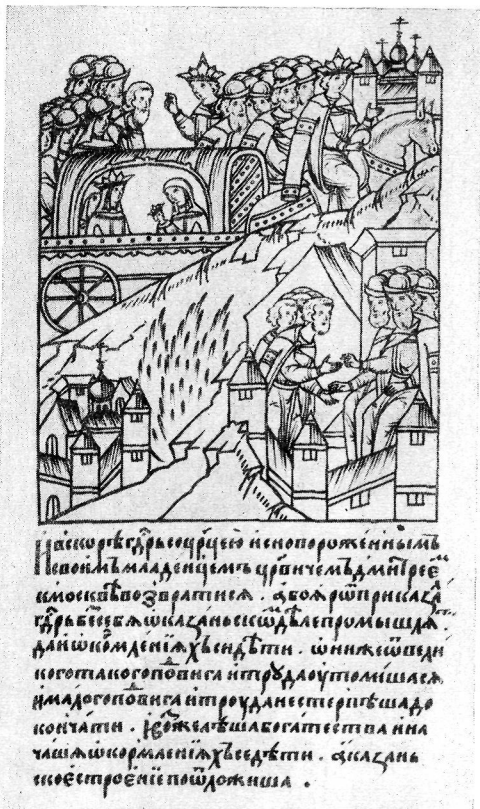 И вскорѣ гдрь со црцею и с новопороженнымъ
своимъ младенцемъ съ црвичемъ дмитрееⷨ
к москвѣ возвратися . а боярѡⷨ приказа
гдрь беⷥ себя ѡ казаньскѡⷨ дѣле промышляⷮ
да и ѡ кормленїяхъ сидѣти . ѡни же ѿ вели
кого такого поⷣвига и труда оутомишася
и малого поⷣвига и труда не стерпѣша до
кончати . и воⷥжелѣша богатества и на
чаша ѡ кормленїяхъ седѣти . а казань
ское строенїе поѿложиша .